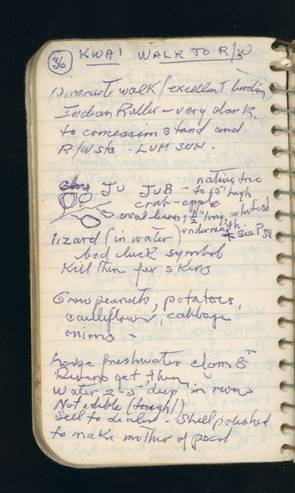 36 KWAI WALK TO R/W
walk / excellent birding
Indian Roller - very dark.
to concession stand and
R/W sta. - LUM SUM.
JU JUB - native tree
to 15' high
crab-apple
oval leaves, 1 1/2" long, whitish
underneath.
* See P 34
lizard (in water)
bad luck symbol
Kill them for skins
Grow peanuts, potatoes,
cauliflower, cabbage
onions -
Large freshwater clams 8"
get them
water 2'-3' deep in river
Not edible (tough!)
sell to dealer. Shell polished
to make mother of pearl